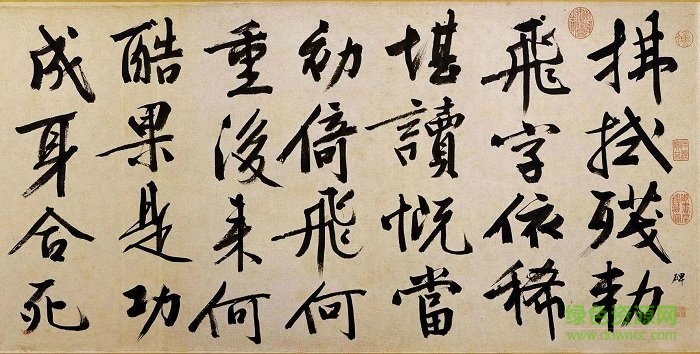 拂拭殘勅
碑
飛字依稀
堪讀慨當
初倚飛何
重後來何
酷果是功
成身合死
绿色资源网
www.downcc.com